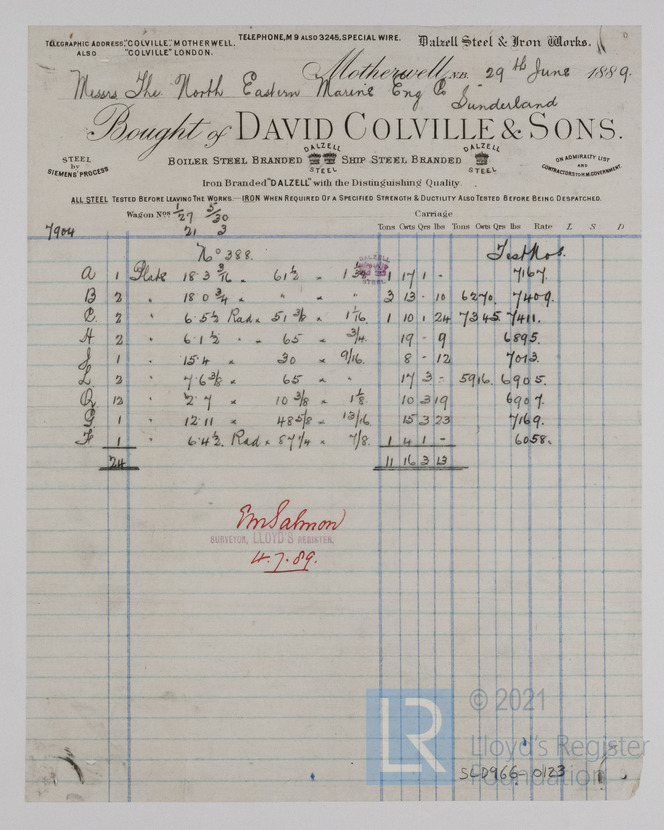 TELEGRAPHIC ADDRESS, "COLVILLE," MOTHERWELL.
ALSO "COLVILLE" LONDON.
TELEPHONE, M 9 ALSO 3245, SPECIAL WIRE.
Dalzell Steel & Iron Works.
Motherwell, N.B. 29th June 1889.
Messrs The North Eastern Marine Eng Co
Sunderland
Bought of DAVID COLVILLE & SONS.
STEEL by SIEMENS' PROCESS
BOILER STEEL BRANDED DALZELL STEEL SHIP STEEL BRANDED DALZELL STEEL
ON ADMIRALTY LIST AND CONTRACTORS FOR H.M. GOVERNMENT.
Iron Branded "DALZELL" with the Distinguishing Quality.
ALL STEEL TESTED BEFORE LEAVING THE WORKS.—IRON WHEN REQUIRED OF A SPECIFIED STRENGTH & DUCTILITY ALSO TESTED BEFORE BEING DESPATCHED.
Wagon Nos 1/27 5/30
21 3
Carriage
7904
Tons Cwts Qrs lbs Tons Cwts Qrs lbs Rate £ S D
No 388. Test Nos.
A 1 Plate 18.3 3/16 × 61½ × 1 17 1 - 7167.
B 2 " 18.0 3/4 × " × " 3 13 - 10 6270. 7409.
C 2 " 6.5½ Rad × 51 3/8 × 1 1/16 1 10 1 24 7345 7411.
H 2 " 6.1½ × 65 × 3/4 19 - 9 6895.
J 1 " 15.4 × 30 × 9/16 8 - 12 7013.
L 2 " 7.6 3/8 × 65 × " 17 3 - 5916. 6905.
Q 12 " 2.7 × 10 3/8 × 1 1/8 10 3 19 6907.
G 1 " 12.11 × 48 5/8 × 13/16 15 3 23 7169.
F 1 " 6.4½ Rad × 57 1/4 × 7/8 1 4 1 - 6058.
24 11 16 3 13
EmSalmon
SURVEYOR, LLOYD'S REGISTER.
4.7.89.
LR
© 2021
Lloyd's Register
Foundation
SLD966-0123